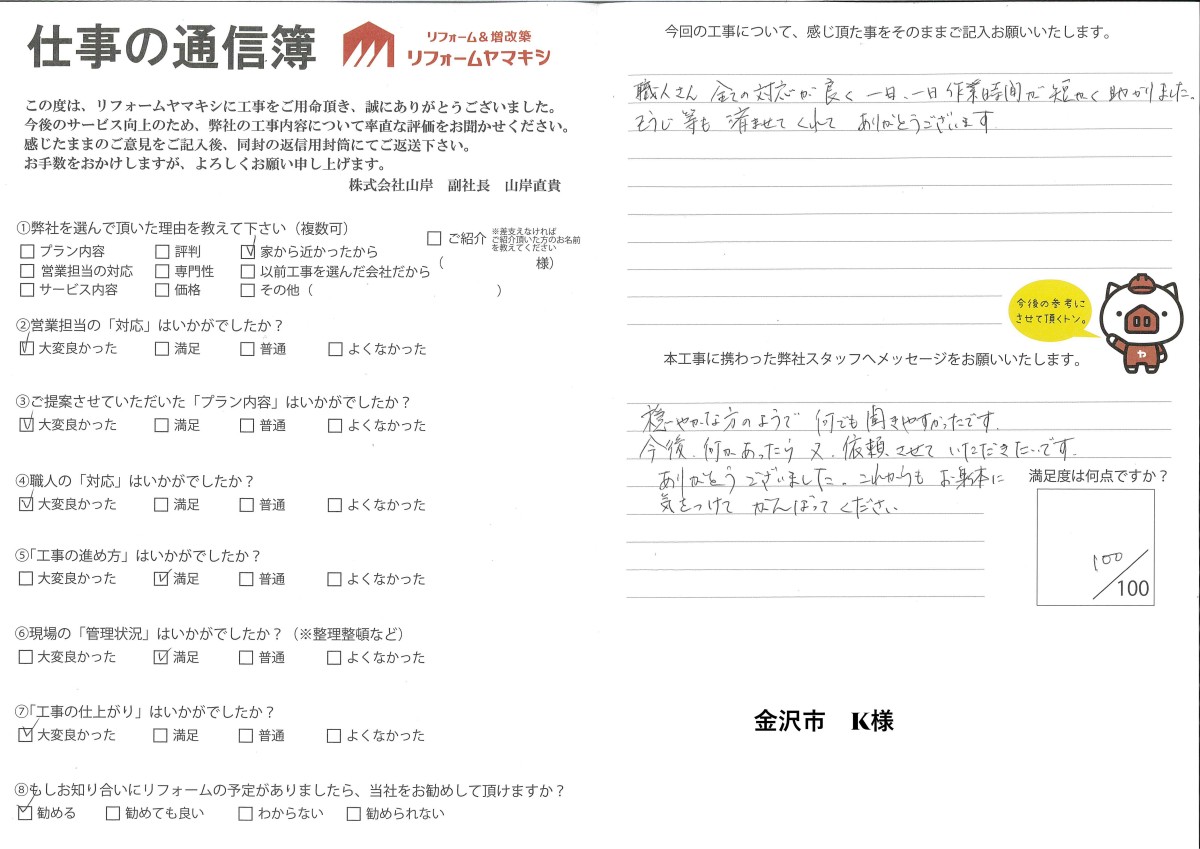 仕事の通信簿
リフォーム&増改築
リフォームヤマキシ
この度は、リフォームヤマキシに工事をご用命頂き、誠にありがとうございました。
今後のサービス向上のため、弊社の工事内容について率直な評価をお聞かせください。
感じたままのご意見をご記入後、同封の返信用封筒にてご返送下さい。
お手数をおかけしますが、よろしくお願い申し上げます。
株式会社山岸 副社長 山岸直貴
①弊社を選んで頂いた理由を教えて下さい(複数可)
□プラン内容 □評判 ☑家から近かったから
□営業担当の対応 □専門性 □以前工事を選んだ会社だから
□サービス内容 □価格 □その他( )
□ご紹介 ※差支えなければ
ご紹介頂いた方のお名前
を教えてください
( 様)
②営業担当の「対応」はいかがでしたか?
☑大変良かった □満足 □普通 □よくなかった
③ご提案させていただいた「プラン内容」はいかがでしたか?
☑大変良かった □満足 □普通 □よくなかった
④職人の「対応」はいかがでしたか?
☑大変良かった □満足 □普通 □よくなかった
⑤「工事の進め方」はいかがでしたか?
□大変良かった ☑満足 □普通 □よくなかった
⑥現場の「管理状況」はいかがでしたか?(※整理整頓など)
□大変良かった ☑満足 □普通 □よくなかった
⑦「工事の仕上がり」はいかがでしたか?
☑大変良かった □満足 □普通 □よくなかった
⑧もしお知り合いにリフォームの予定がありましたら、当社をお勧めして頂けますか?
☑勧める □勧めても良い □わからない □勧められない
今回の工事について、感じ頂た事をそのままご記入お願いいたします。
職人さん 全ての対応が良く 一日、一日 作業時間が短かく助かりました。
そうじ等も 済ませてくれて ありがとうございます
今後の参考に
させて頂くトン。
ヤ
本工事に携わった弊社スタッフへメッセージをお願いいたします。
穏やかな方のようで 何でも聞きやすかったです.
今後、何かあったら 又、依頼させて いただきたいです.
ありがとうございました。これからも お身体に
気をつけて がんばってください
満足度は何点ですか?
100/100
金沢市 K様